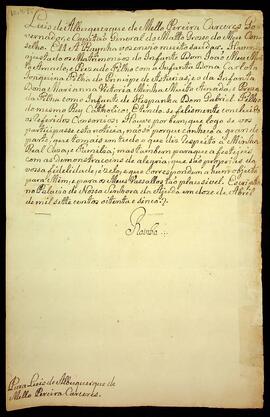 Luis de Albuquerque de Mello Pereira Carceres Go-
vernador, e Capitão General de Matto Groso do Meu Con-
selho. EU A Raynha vos envio muito saudar. Haven-
ajustado os Matrimonios do Infante Dom João Meu Mui-
to Amado, e Prezado Filho com a Infanta Dona Carlota
Joaquina Filha do Principe de Asturias; e da Infanta
Dona Marianna Victoria Minha Muito Amada, e Preza-
da Filha com o Infante de Hespanha Dom Gabriel Filho
do mesmo Rey Catholico: E tendo-se felismente concluido
os referidos Consorcios: Houve por bem, que logo se vos
participasse esta noticia, não só porque conheço a gran-de
parte, que tomais em tudo o que diz respeito á Minha
Real Casa, e Familia; mas tambem para que a festejeis
com as demonstraçoens de alegria, que são proprias da
vossa fidelidade, e zelo, e que correspondem a hum objecto
para Mim, e para os Meus Vassallos tão plausivel. Escrita
no Palacio de Nossa Senhora da Ajuda em doze de Abril
de mil sete centos oitenta e sinco.
Rainha
Para Luis de Albuquerque de
Mello Pereira Carceres.